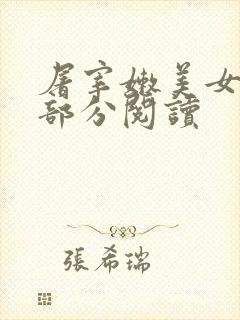 屠宰嫩美女
部分閱讀
張希瑞